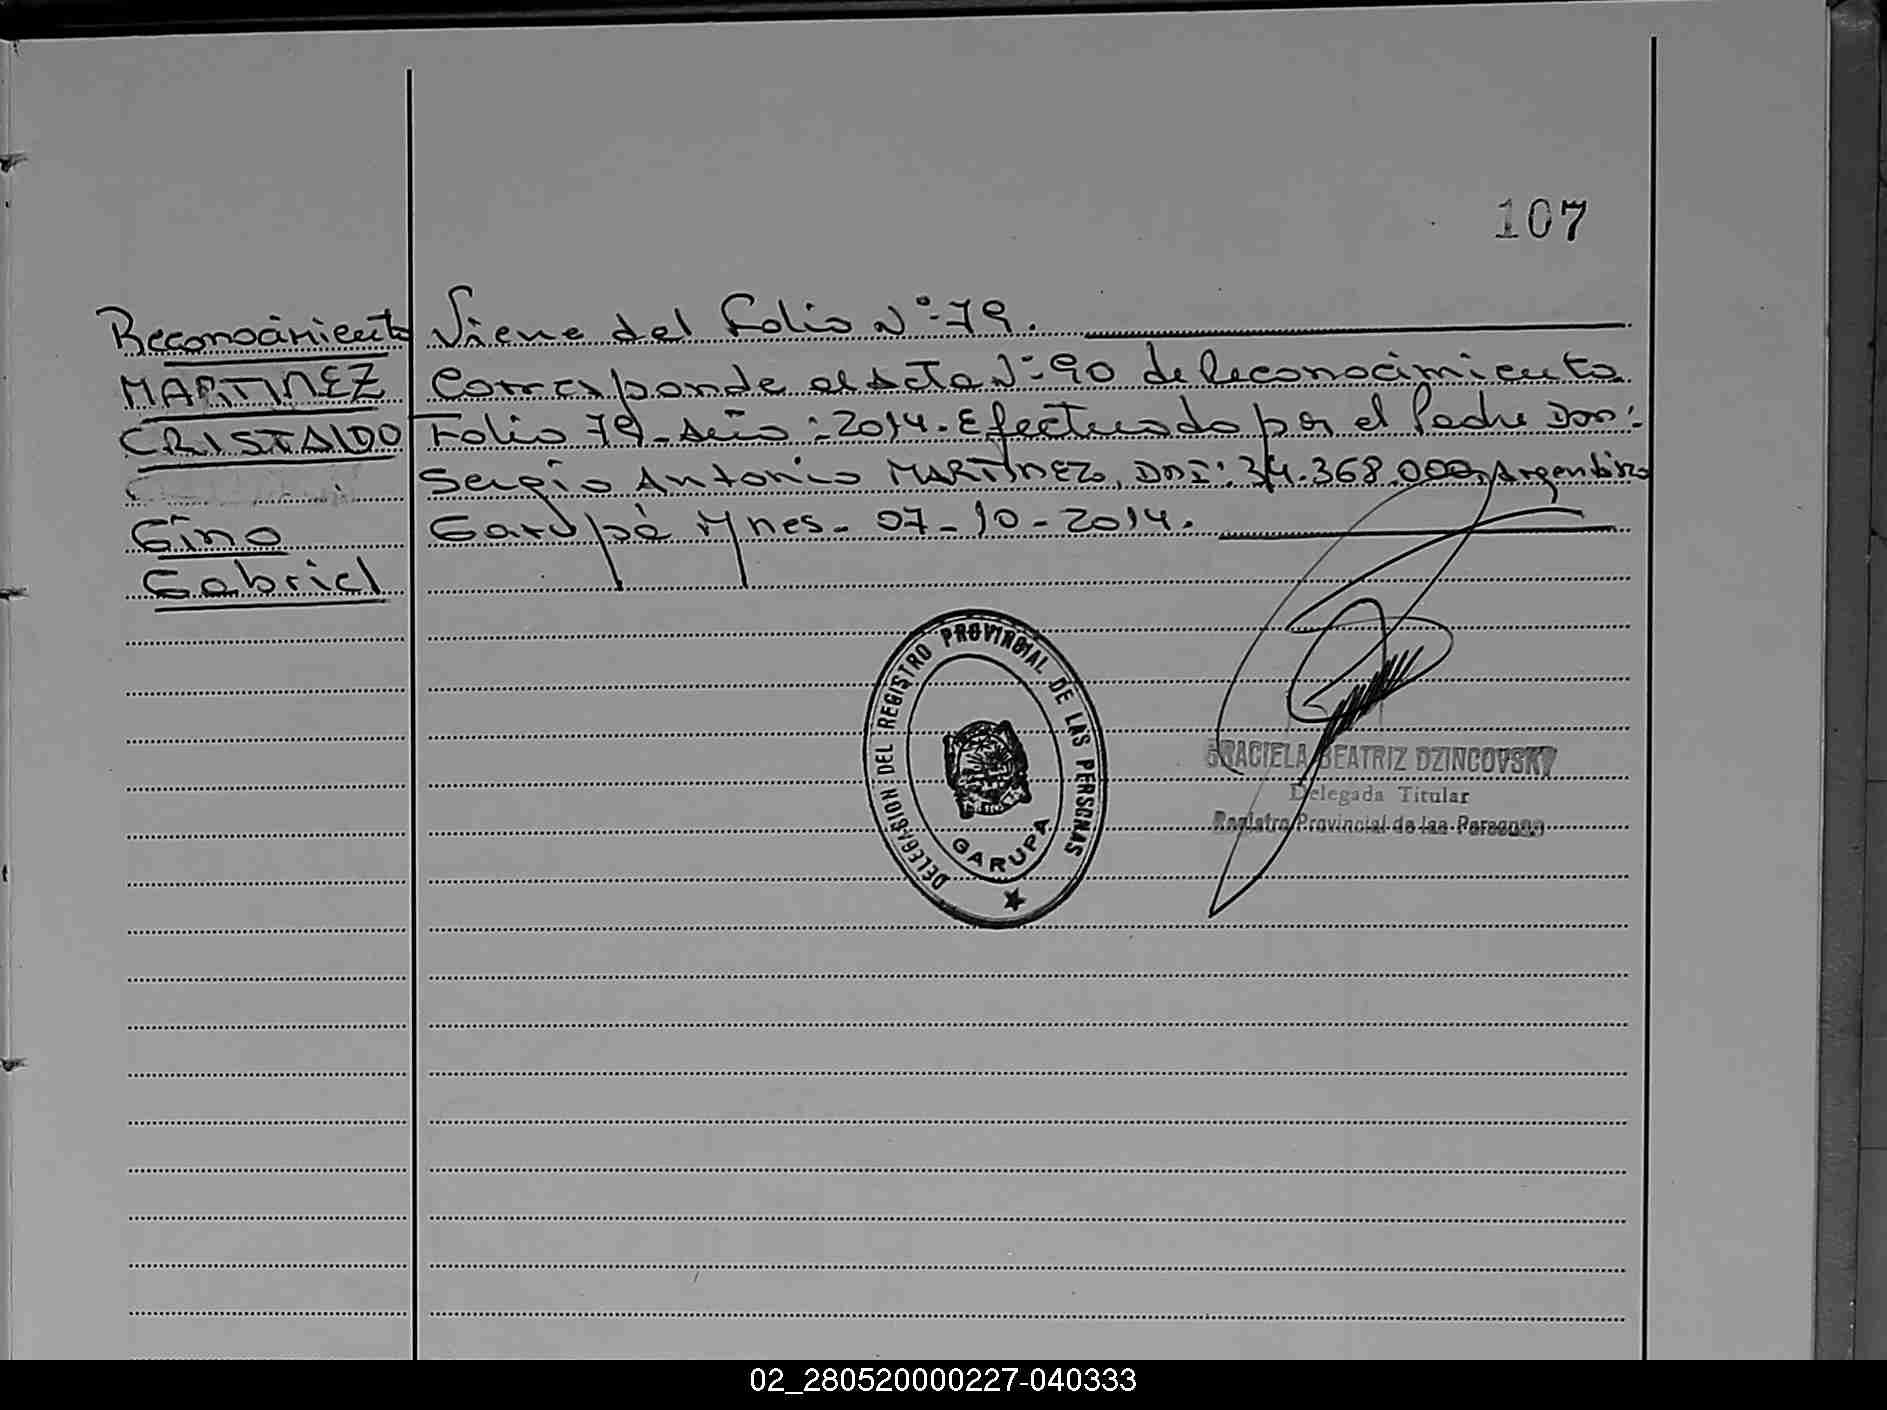 107
Reconocimiento
MARTINEZ
CRISTALDO
Gino
Gabriel
Viene del Folio Nº-79.
Corresponde al Acta Nº-90 de Reconocimiento
Folio 79-Año:2014. Efectuado por el Padre Don:
Sergio Antonio MARTINEZ, DNI: 34.368.000, Argentino
Garupá Mnes- 07-10-2014.
DELEGACION DEL REGISTRO PROVINCIAL DE LAS PERSONAS
GARUPA
GRACIELA BEATRIZ DZINCOVSKY
Delegada Titular
Registro Provincial de las Personas
02_280520000227-040333